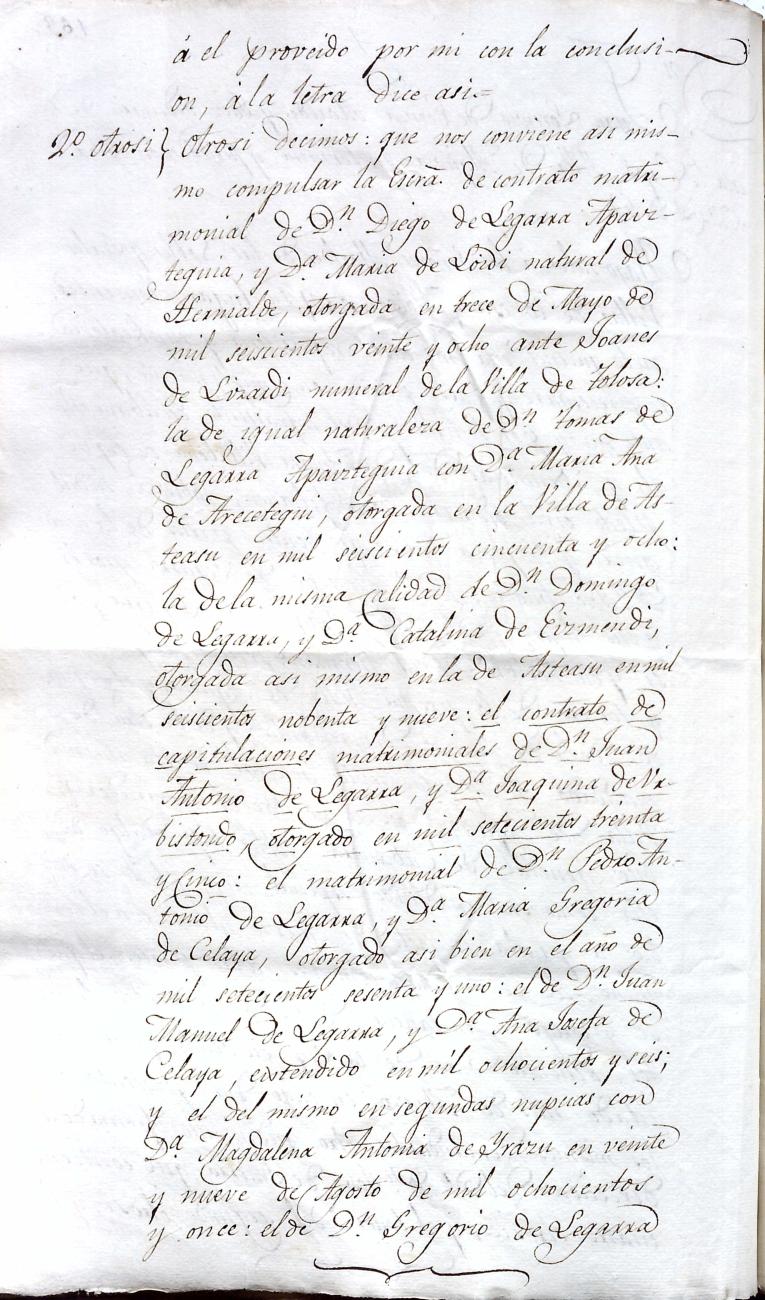 á el proveido por mi con la conclusi-
on, á la letra dice asi=
2º otrosi} otrosi decimos: que nos conviene asi mis-
mo compulsar la Escrã. de contrato matri-
monial de Dⁿ Diego de Legarra Apaiz-
teguia, y Dª Maria de Loidi natural de
Hernialde, otorgada en trece de Mayo de
mil seiscientos veinte y ocho ante Joanes
de Lizardi numeral de la Villa de Tolosa:
la de igual naturaleza de Dⁿ Tomas de
Legarra Apaizteguia con Dª Maria Ana
de Arecetegui, otorgada en la Villa de As-
teasu en mil seiscientos cincuenta y ocho:
la de la misma calidad de Dⁿ Domingo
de Legarra, y Dª Catalina de Eizmendi,
otorgada asi mismo en la de Asteasu en mil
seiscientos nobenta y nueve: el contrato de
capitulaciones matrimoniales de Dⁿ Juan
Antonio de Legarra, y Dª Joaquina de Ur-
bistondo, otorgado en mil setecientos treinta
y Cinco: el matrimonial de Dⁿ Pedro An-
tonio de Legarra, y Dª Maria Gregoria
de Celaya, otorgado asi bien en el año de
mil setecientos sesenta y uno: el de Dⁿ Juan
Manuel de Legarra, y Dª Ana Josefa de
Celaya, extendido en mil ochocientos y seis;
y el del mismo en segundas nupcias con
Dª Magdalena Antonia de Yrazu en veinte
y nueve de Agosto de mil ochocientos
y once: el de Dⁿ Gregorio de Legarra